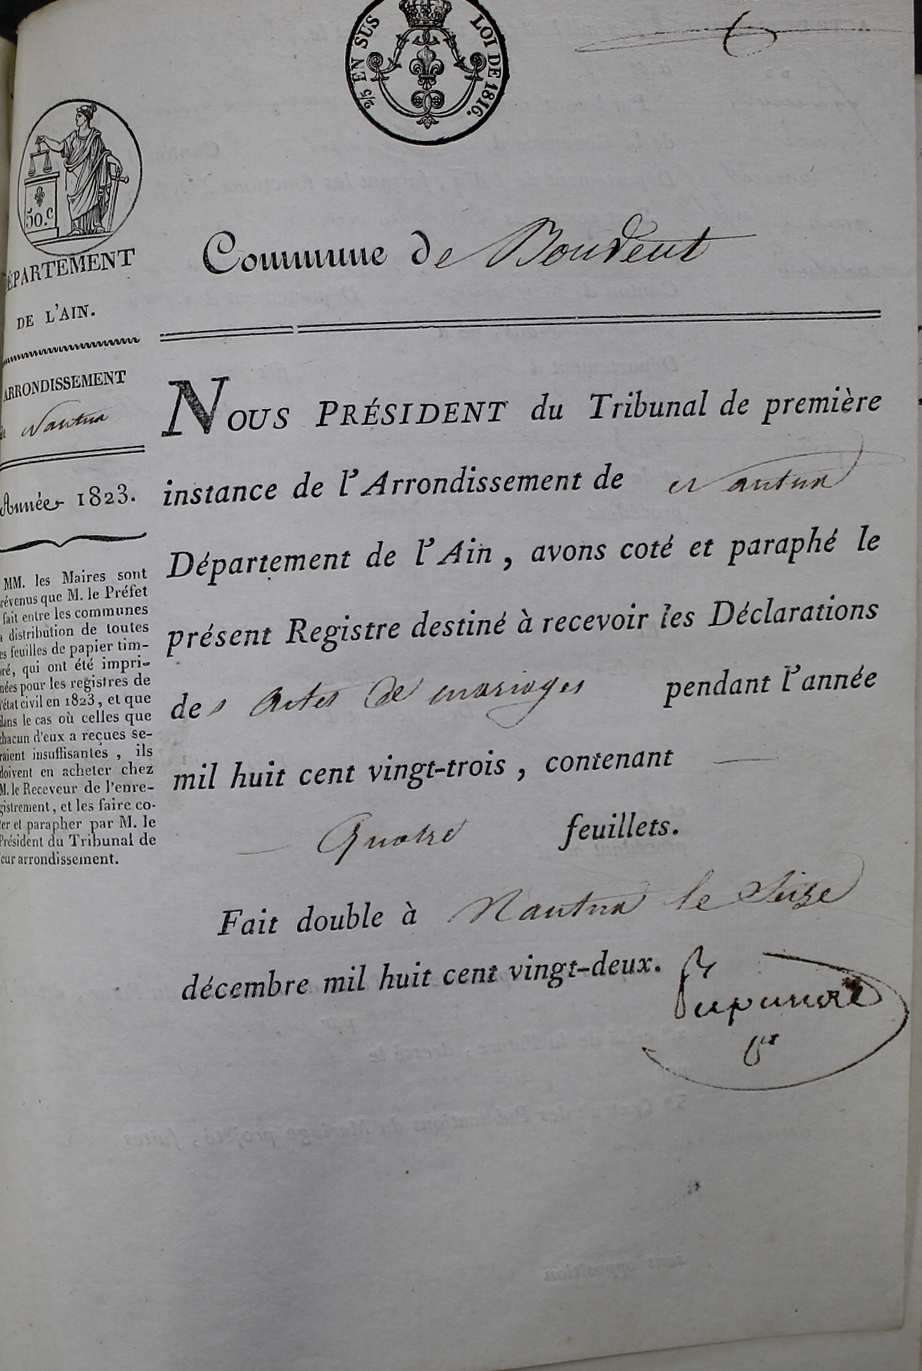 2/5 EN SUS LOI DE 1816.
50.c
DÉPARTEMENT
DE L'AIN.
ARRONDISSEMENT
de Nantua
Année 1823.
MM. les Maires sont
prévenus que M. le Préfet
fait entre les communes
la distribution de toutes
les feuilles de papier tim-
bré, qui ont été impri-
mées pour les registres de
l'état civil en 1823, et que
dans le cas où celles que
chacun d'eux a reçues se-
raient insuffisantes, ils
doivent en acheter chez
M. le Receveur de l'enre-
gistrement, et les faire co-
ter et parapher par M. le
Président du Tribunal de
leur arrondissement.
Commune de Boudent
NOUS PRÉSIDENT du Tribunal de première
instance de l'Arrondissement de Nantua
Département de l'Ain, avons coté et paraphé le
présent Registre destiné à recevoir les Déclarations
des Actes de mariages pendant l'année
mil huit cent vingt-trois, contenant
Quatre feuillets.
Fait double à Nantua le Seize
décembre mil huit cent vingt-deux.